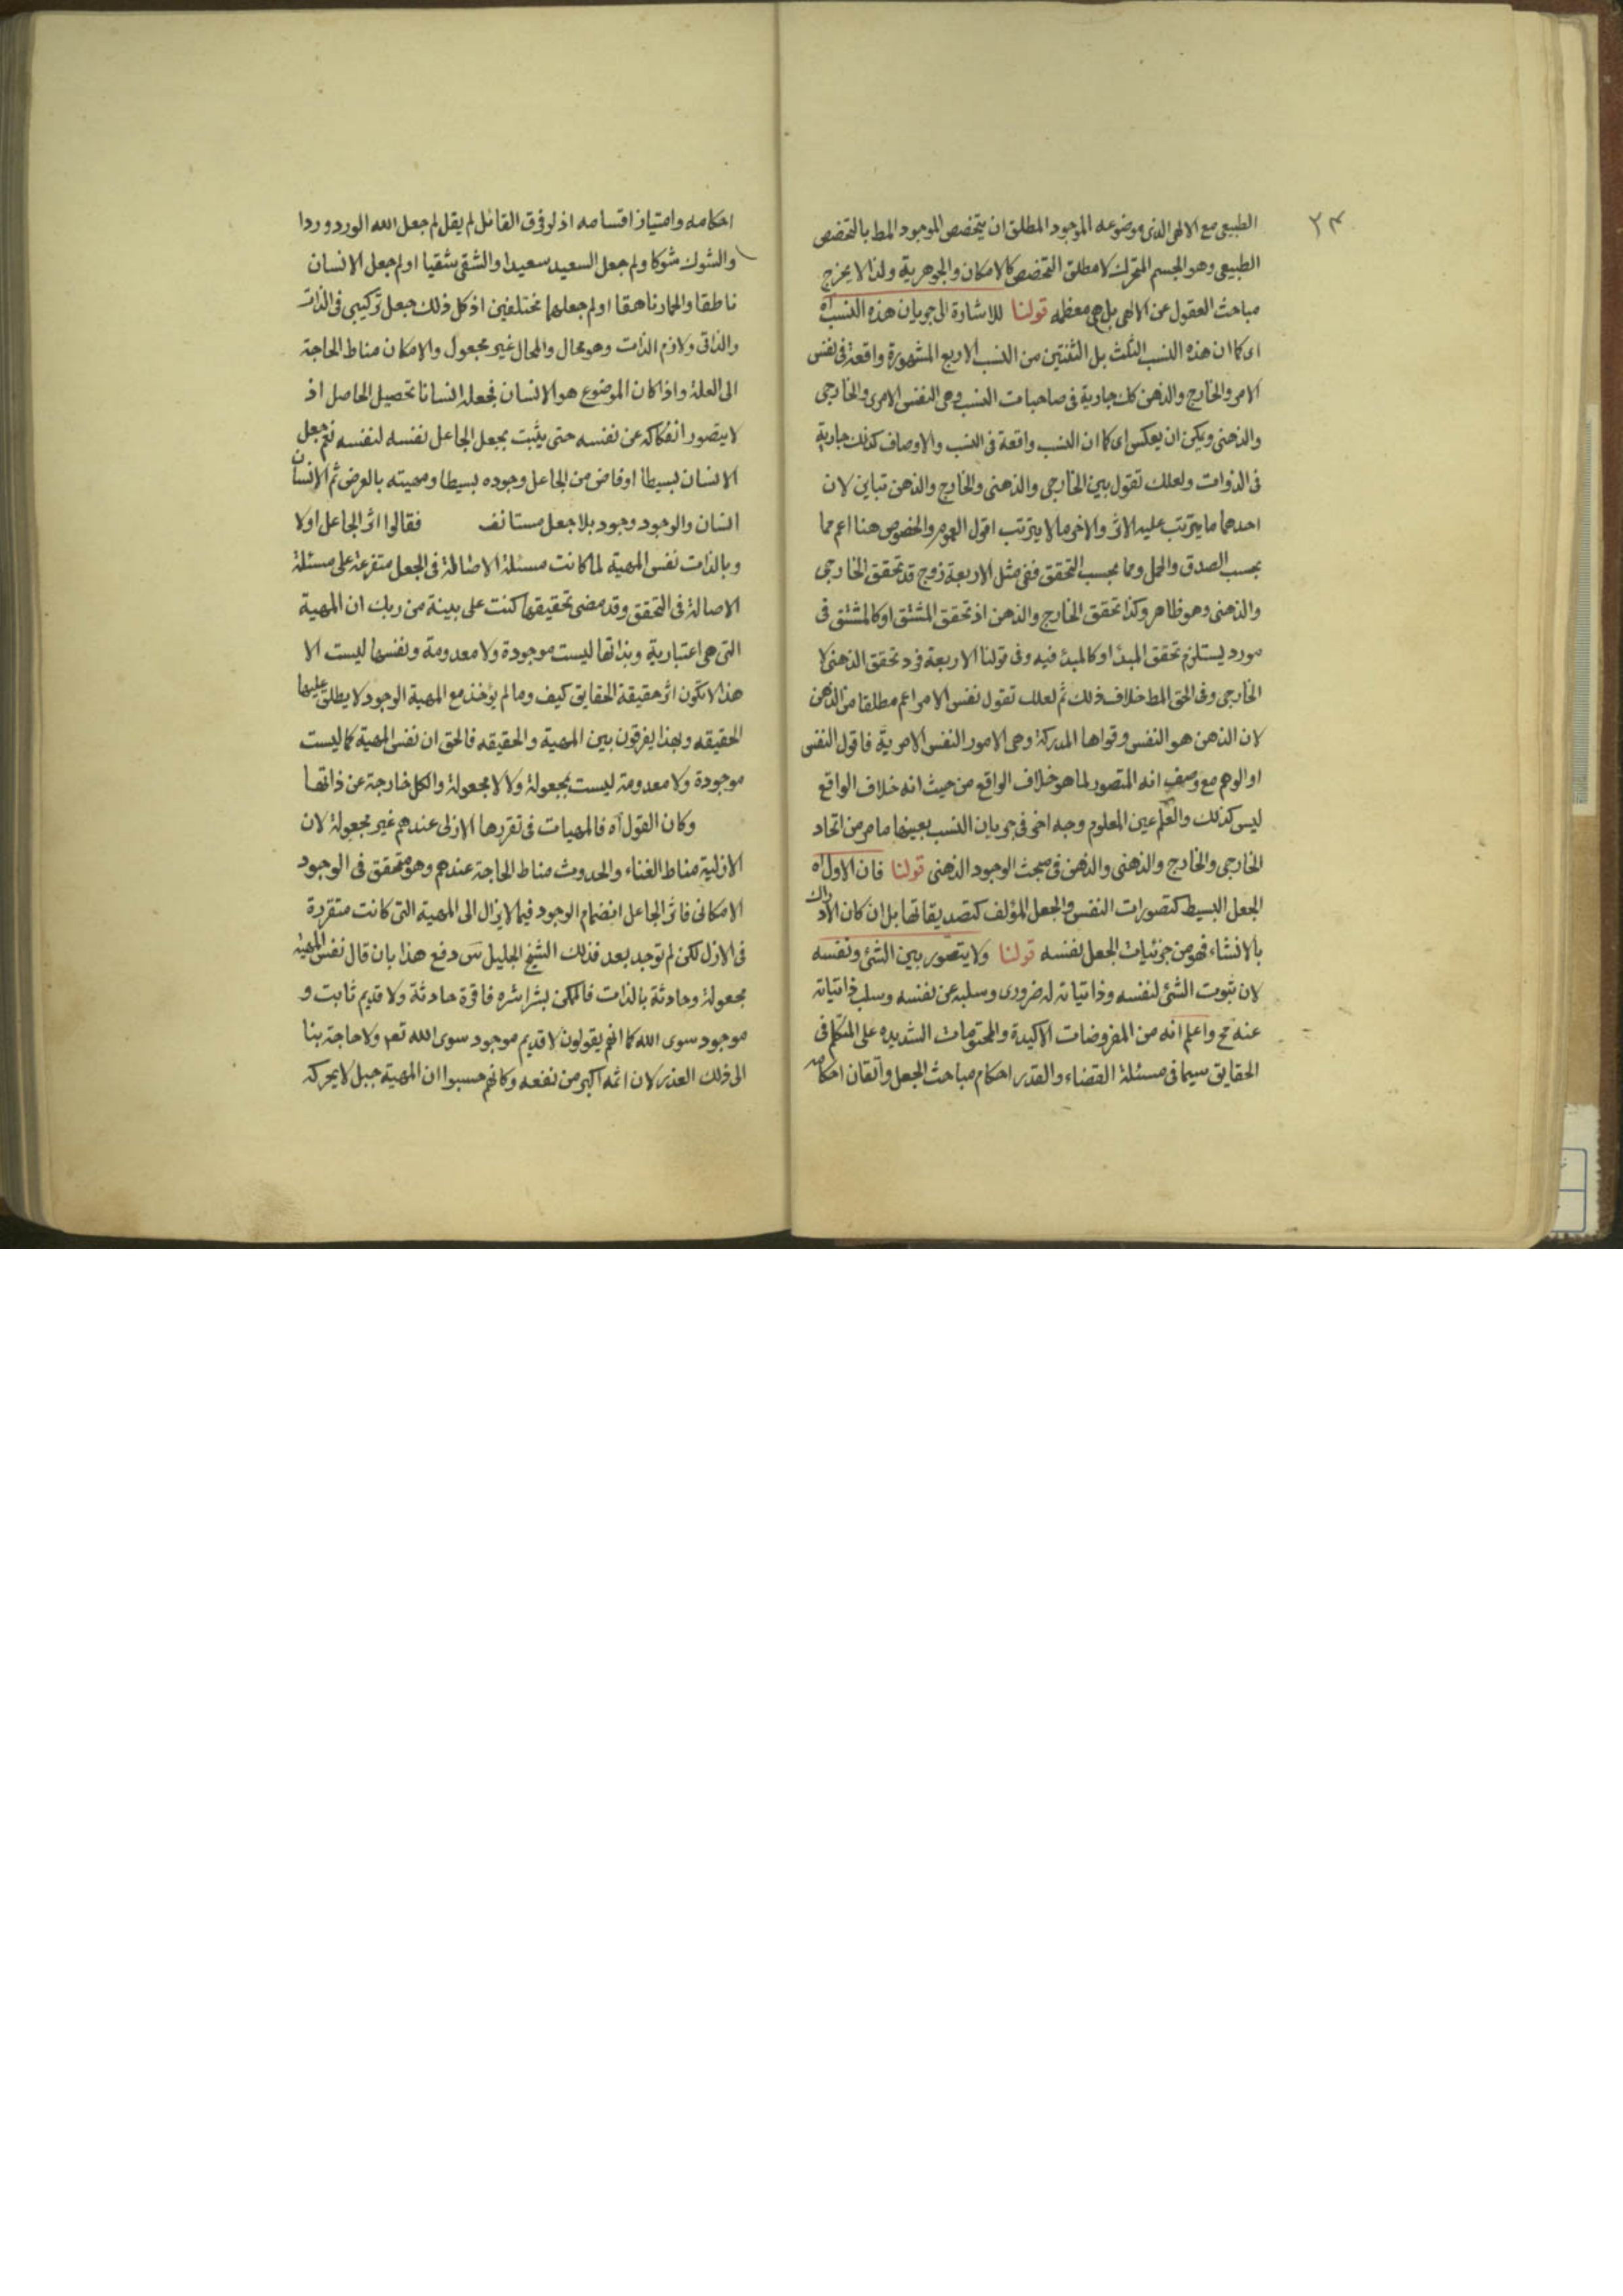 ٣٤
الطبيعى مع الالهى الذى موضوعه الموجود المطلق ان يتخصص الموجود المط بالتخصص
الطبيعى وهو الجسم المتحرك لا مطلق التخصص كالامكان والجوهرية ولذا لا يخرج
مباحث العقول عن الالهى بل هى معظمه قولنا للاشارة الى جريان هذه النسب اه
اى كما ان هذه النسب الثلث بل الثنتين من النسب الاربع المشهورة واقعة فى نفس
الامر والخارج والذهن كك جارية فى صاحبات النسب وهى النفس الامرى والخارجى
والذهنى ويمكن ان يعكس اى كما ان النسب واقعة فى النسب والاوصاف كذلك جارية
فى الذوات ولعلك تقول بين الخارجى والذهنى والخارج والذهن تباين لان
احدهما ما يترتب عليه الاثر والاخر ما لا يترتب اقول العموم والخصوص هنا اعم مما
بحسب الصدق والحمل ومما بحسب التحقق ففى مثل الاربعة زوج قد تحقق الخارجى
والذهنى وهو ظاهر وكذا تحقق الخارج والذهن اذ تحقق المشتق او كالمشتق فى
مورد يستلزم تحقق المبدأ او كالمبدء فيه وفى قولنا الاربعة فرد تحقق الذهنى لا
الخارجى وفى الحق المط خلاف ذلك ثم لعلك تقول نفس الامر اعم مطلقا من الذهن
لان الذهن هو النفس وقواها المدركة وهى الامور النفس الامرية فاقول النفس
او الوهم مع وصف انه المتصور لما هو خلاف الواقع من حيث انه خلاف الواقع
ليس كذلك والعلم عين المعلوم وجه اخر فى جريان النسب بعينها ما مر من اتحاد
الخارجى والخارج والذهنى والذهن فى مبحث الوجود الذهنى قولنا فان الاول اه
الجعل البسيط كتصورات النفس والجعل المؤلف كتصديقاتها بل ان كان الادراك
بالانشاء فهو من جزئيات الجعل نفسه قولنا ولا يتصور بين الشئ ونفسه
لان ثبوت الشئ لنفسه وذاتياته له ضرورى وسلبه عن نفسه وسلب ذاتياته
عنه مح واعلم انه من المفروضات الاكيدة والمحتومات الشديده على المتكلم فى
الحقايق سيما فى مسئلة القضاء والقدر احكام مباحث الجعل واتقان احكامه
احكامه وامتياز اقسامه اذ لو فرق القائل لم يقل لم جعل الله الورد وردا
والشوك شوكا ولم جعل السعيد سعيدا والشقى شقيا او لم جعل الانسان
ناطقا والحمار ناهقا او لم جعلهما مختلفين اذ كل ذلك جعل تركيبى فى الذات
والذاتى ولازم الذات وهو محال والمحال غير مجعول والامكان مناط الحاجة
الى العلة واذا كان الموضوع هو الانسان فجعله انسانا تحصيل الحاصل اذ
لا يتصور انفكاكه عن نفسه حتى يثبت بجعل الجاعل نفسه لنفسه نعم جعل
الانسان بسيطا او فاض من الجاعل وجوده بسيطا ومهيته بالعرض ثم الانسان
انسان والوجود وجود بلا جعل مستانف فقالوا اثر الجاعل اولا
وبالذات نفس المهية لما كانت مسئلة الاصالة فى الجعل متفرعة على مسئلة
الاصالة فى التحقق وقد مضى تحقيقها كنت على بينة من ربك ان المهية
التى هى اعتبارية وبذاتها ليست موجودة ولا معدومة ونفسها ليست الا
هذا لا تكون اثر حقيقة الحقايق كيف وما لم يؤخذ مع المهية الوجود لا يطلق عليها
الحقيقه وبهذا يفرقون بين المهية والحقيقه فالحق ان نفس المهية كما ليست
موجودة ولا معدومة ليست بمجعولة ولا لا مجعولة والكل خارجة عن ذاتها
وكان القول اه فالمهيات فى تقررها الازلى عندهم غير مجعولة لان
الازلية مناط الغناء والحدوث مناط الحاجة عندهم وهو متحقق فى الوجود
الامكانى فاثر الجاعل انضمام الوجود فيما لا يزال الى المهية التى كانت متقررة
فى الازل لكن لم توجد بعد فذلك الشيخ الجليل س دفع هذا بان قال نفس المهية
مجعولة وحادثة بالذات فالممكن بشراشره فاقرة حادثة ولا قديم ثابت و
موجود سوى الله كما انهم يقولون لا قديم موجود سوى الله تعم ولا حاجة بنا
الى ذلك العذر لان اثمه اكبر من نفعه وكانهم حسبوا ان المهية جبل لا يحركه